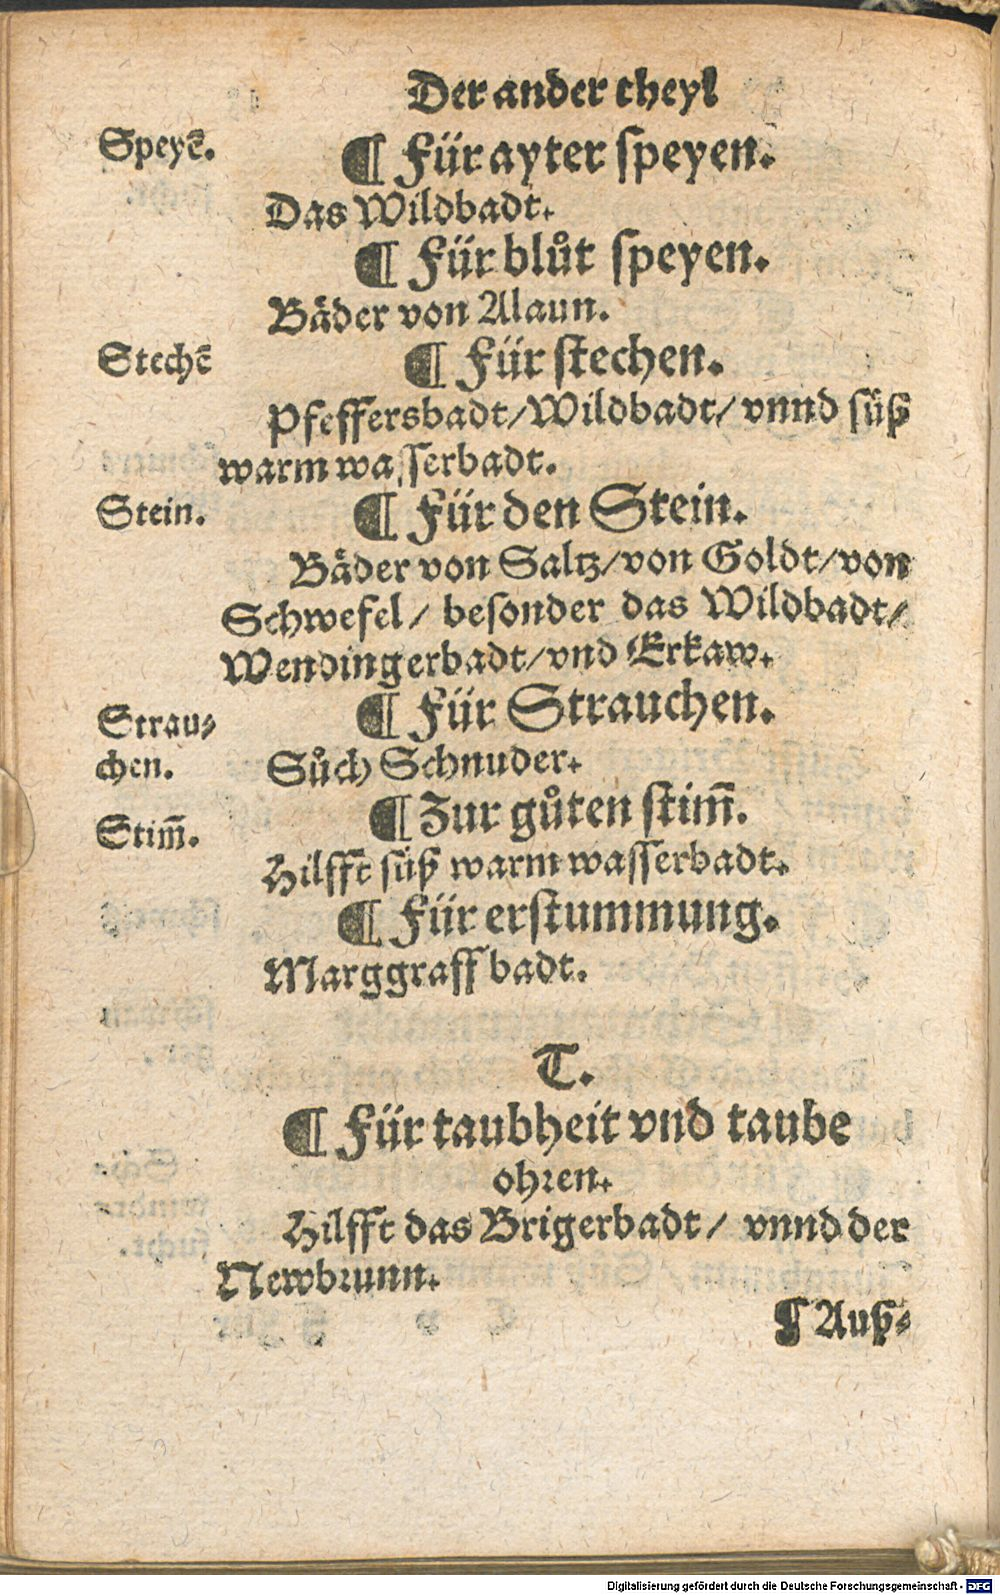 Der ander theyl
Speyē.
¶ Für ayter speyen.
Das Wildbadt.
¶ Für blůt speyen.
Bäder von Alaun.
Stechē
¶ Für stechen.
Pfeffersbadt/Wildbadt/ vnnd süß
warm wasserbadt.
Stein.
¶ Für den Stein.
Bäder von Saltz/von Goldt/von
Schwefel/ besonder das Wildbadt/
Wendingerbadt/vnd Erkaw.
Strau⸗
chen.
¶ Für Strauchen.
Sůch Schnuder.
Stim̄.
¶ Zur gůten stim̄.
Hilfft süß warm wasserbadt.
¶ Für erstummung.
Marggraff badt.
T.
¶ Für taubheit vnd taube
ohren.
Hilfft das Brigerbadt/ vnnd der
Newbrunn.
¶ Auß⸗
Digitalisierung gefördert durch die Deutsche Forschungsgemeinschaft - DFG